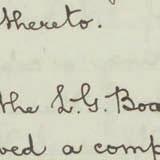 thereto.
the L.G. Boa
ved a comp